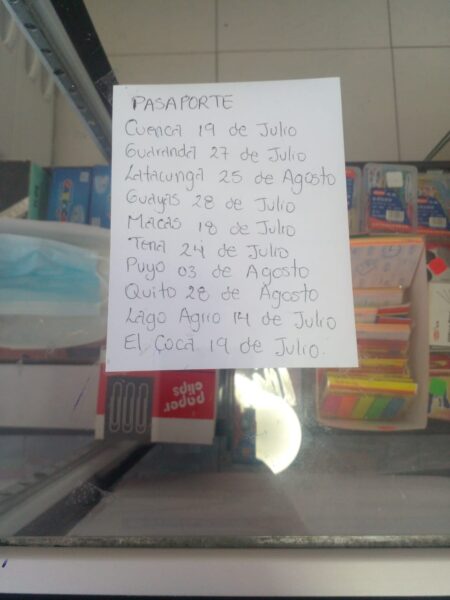 PASAPORTE
Cuenca 19 de Julio
Guaranda 27 de Julio
Latacunga 25 de Agosto
Guayas 28 de Julio
Macas 18 de Julio
Tena 24 de Julio
Puyo 03 de Agosto
Quito 28 de Agosto
Lago Agrio 14 de Julio
El Coca 19 de Julio.
paper
clips